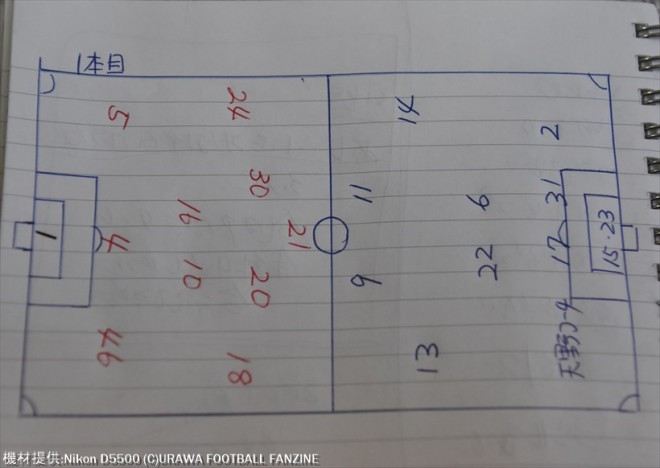 1本目
5
24
14
2
30
11
6
31
16
21
1
4
10
20
9
22
17
15・23
46
18
13
天野コーチ
機材提供:Nikon D5500 (C)URAWA FOOTBALL FANZINE